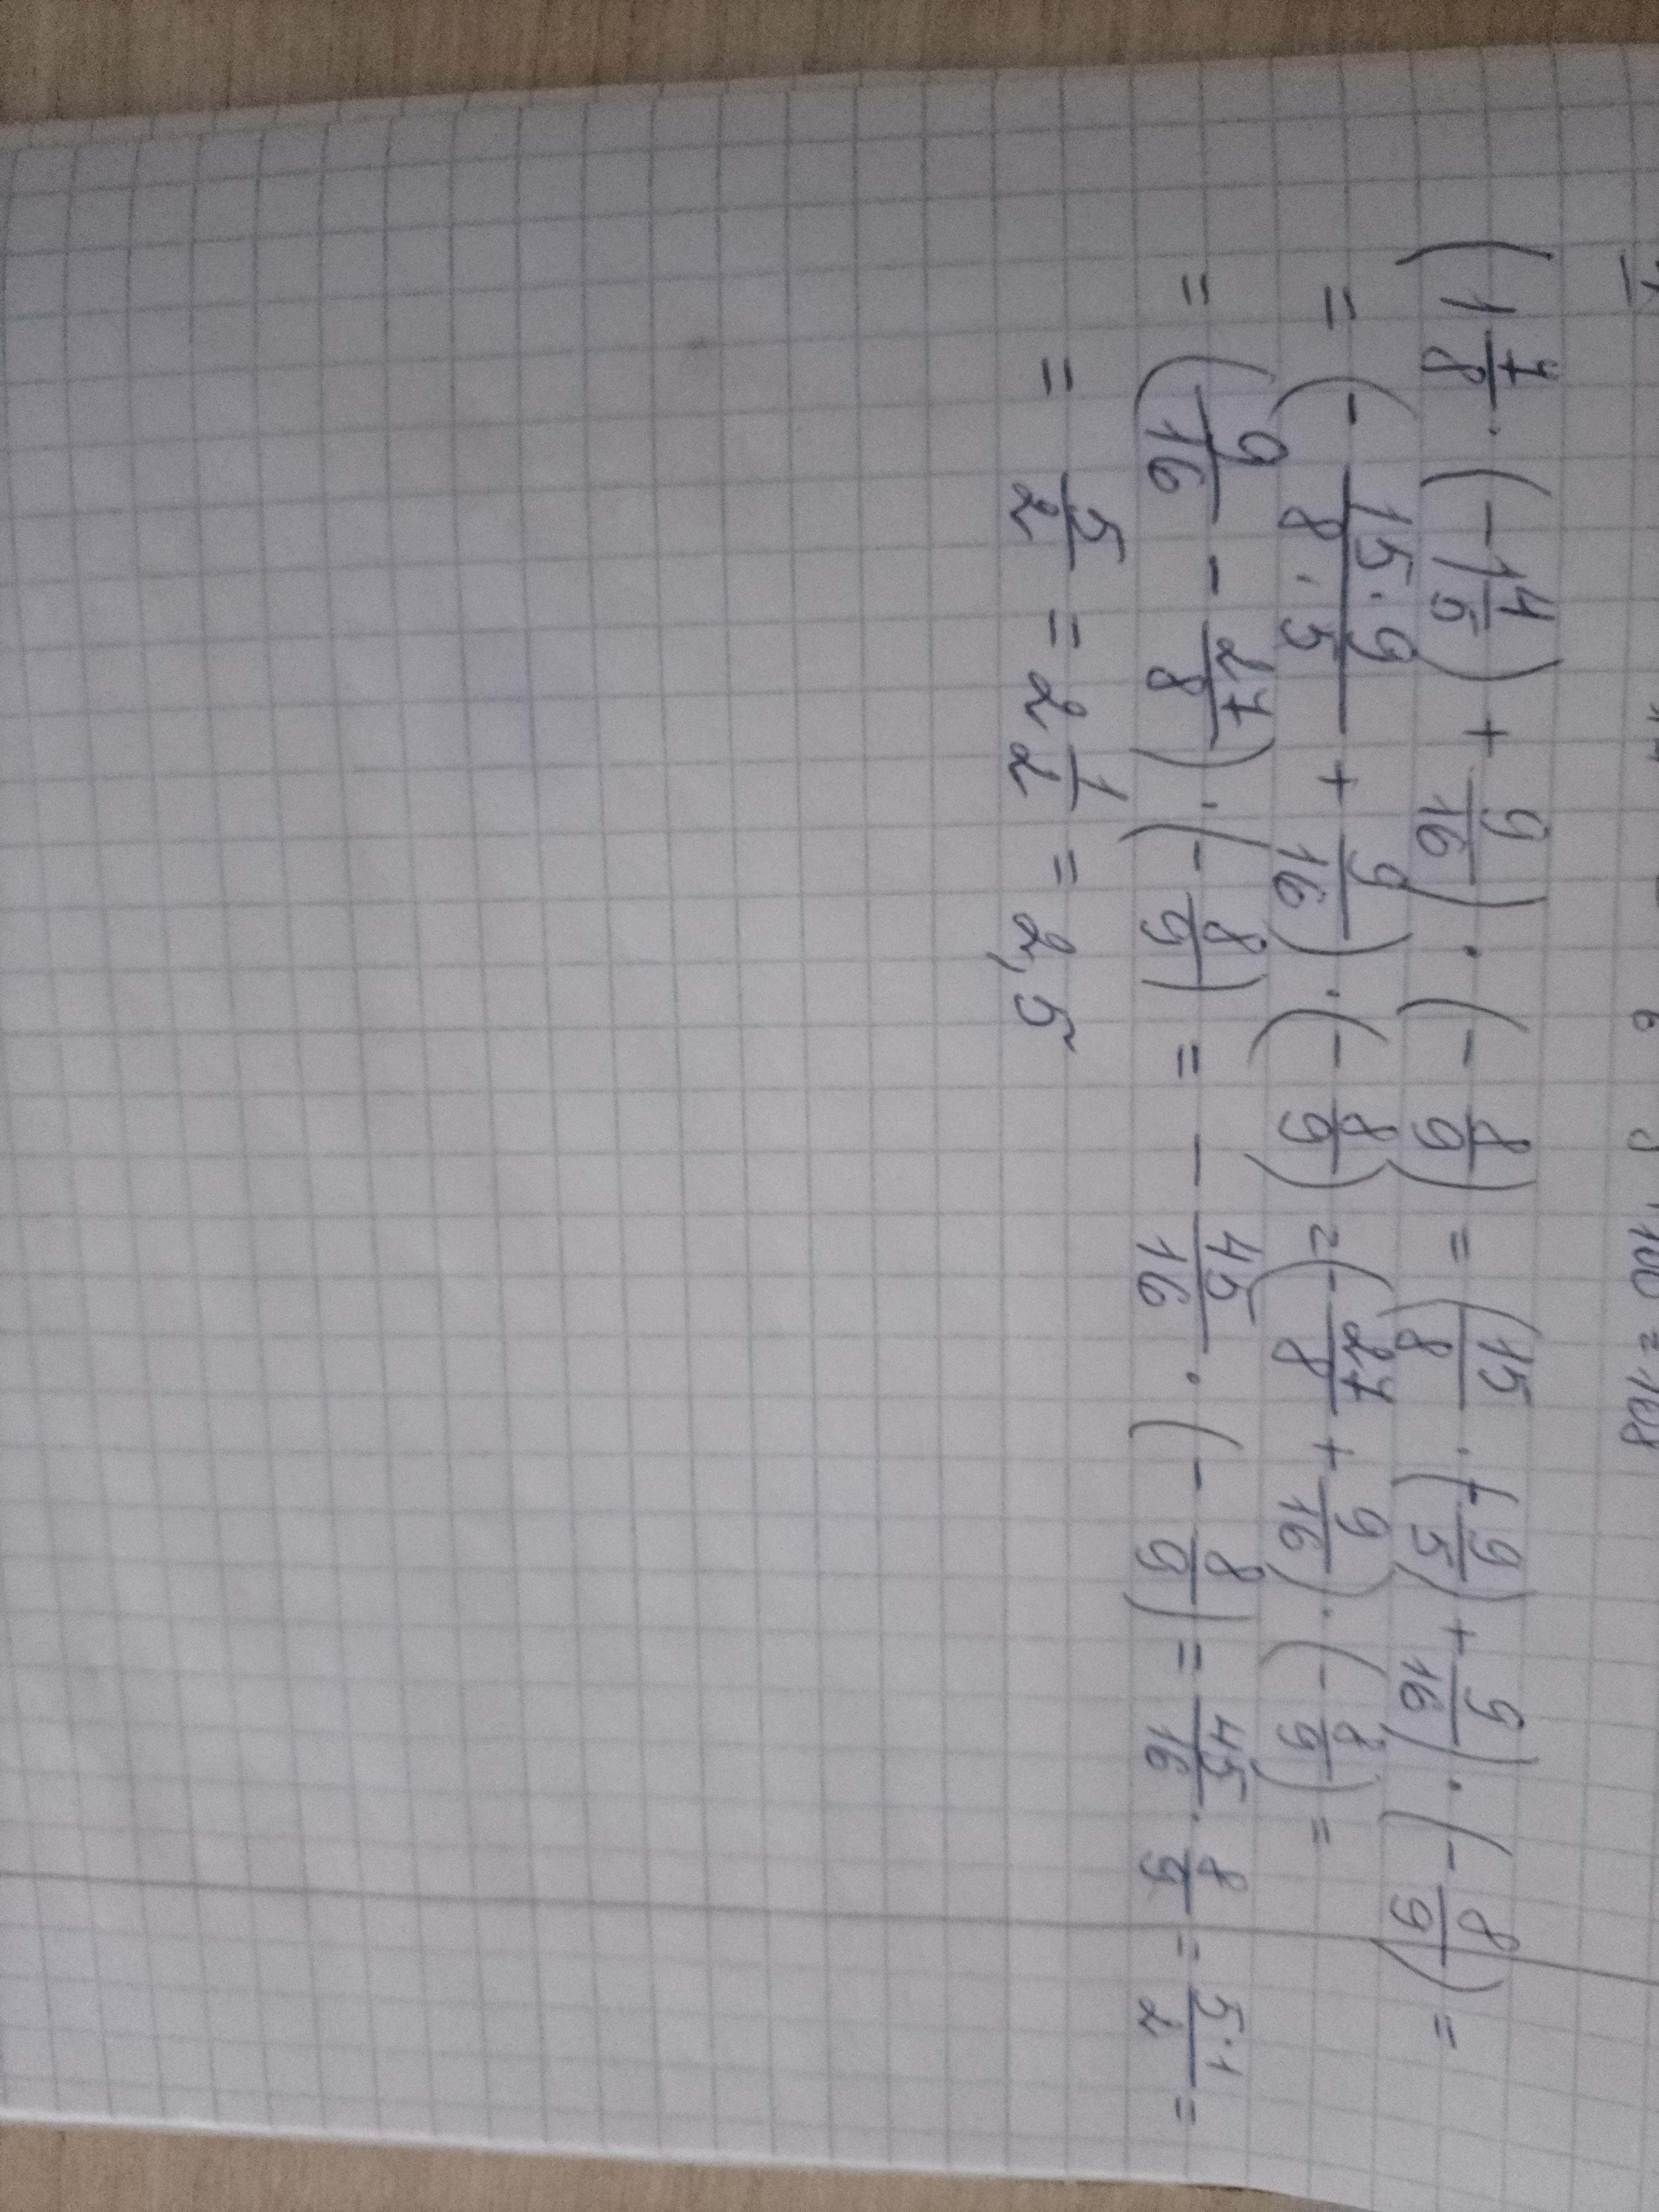 · 100 = 168
(1 7/8 · (-1 4/5) + 9/16) · (- 8/9) = (15/8 · (- 9/5) + 9/16) · (- 8/9) =
= (- 15·9/8·5 + 9/16) · (- 8/9) = (- 27/8 + 9/16) · (- 8/9) =
= (9/16 - 27/8) · (- 8/9) = - 45/16 · (- 8/9) = 45/16 · 8/9 = 5·1/2 =
= 5/2 = 2 1/2 = 2,5